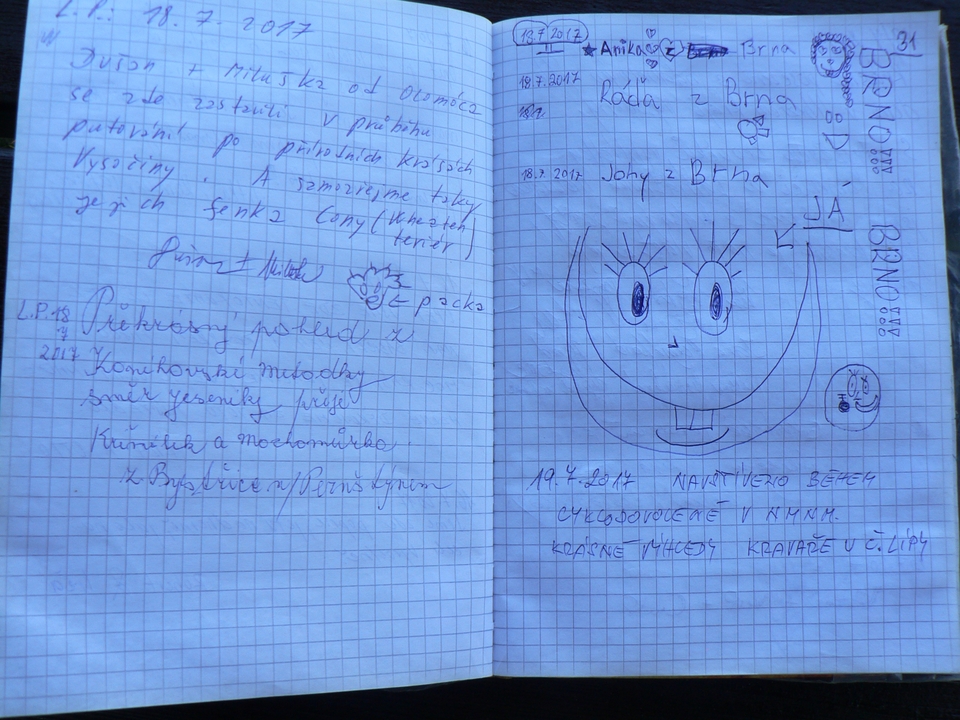 L.P.: 18. 7. 2017
Dušan + Miluška od Olomóca
se zde zastavili v průběhu
putování po přírodních krásách
Vysočiny. A samozřejmě taky
jejich fenka Cony
teriér)
← packa
L.P. 18
7
2017
Překrásný pohled z
směr Jeseníky přeje
Křemílek a Vochomůrka
z Bystřice n/Pernštýnem
31
18.7.2017
★ Anika z Brna
18.7.2017
Ráďa z Brna
18.7.2017 Johy z Brna
JÁ
BRNO!
BRNO!
19.7.2017 NAVŠTÍVENO BĚHEM
CYKLODOVOLENÉ V NMNM.
KRÁSNÉ VÝHLEDY KRAVAŘE U Č. LÍPY